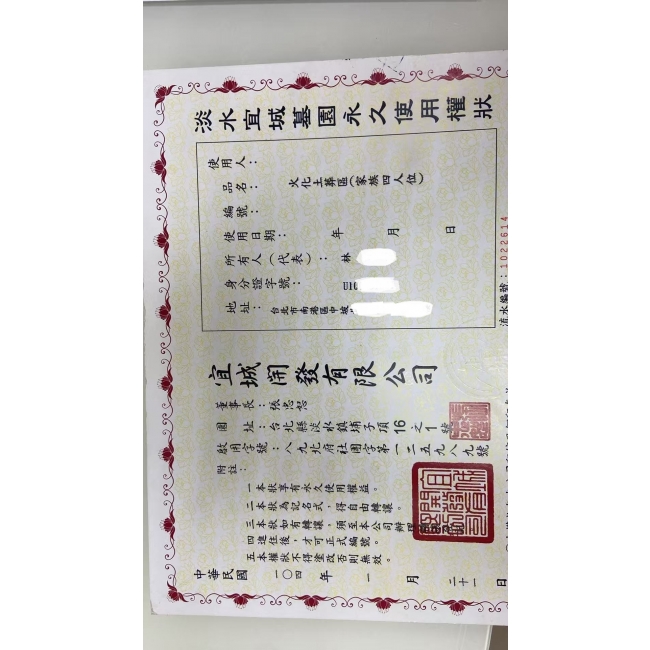 淡水宜城墓園永久使用權狀
使用人：
品名： 火化土葬區(家族四人位)
編號：
使用日期： 年 月 日
所有人(代表)： 林
身分證字號：
地址： 台北市南港區中坡
流水編號：1022614
宜城開發有限公司
董事長：張
園 址：台北縣淡水鎮埔子頂16之1號
啟用字號：八九北府社團字第一二五九八九號
附註：
一本狀享有永久使用權益。
二本狀為記名式，得自由轉讓。
三本狀如有轉讓，須至本公司辦理
四進住後，才可正式編號。
五本權狀不得塗改否則無效。
中華民國 一〇四 年 一 月 二十一 日